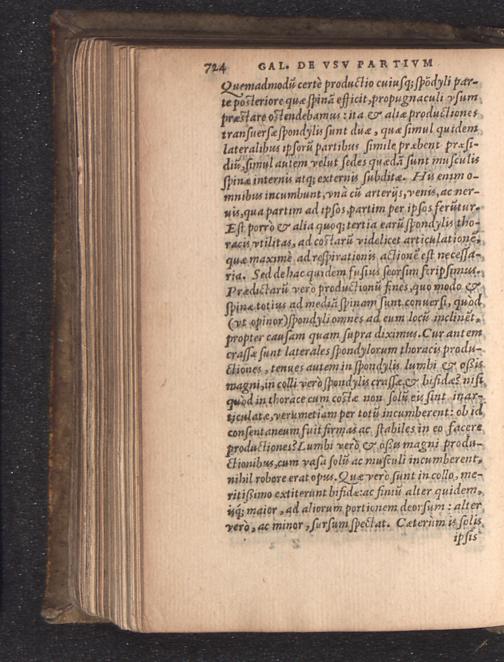 724 GAL. DE VSV PARTIVM
Quemadmodũ certè productio cuiusq; spõdyli par-
te posteriore quæ spinã efficit, propugnaculi vsum
præstare ostendebamus: ita & aliæ productiones
transuersæ spondylis sunt duæ, quæ simul quidem
lateralibus ipsorũ partibus simile præbent præsi-
diũ, simul autem velut sedes quædã sunt musculis
spinæ internis atq; externis subditæ. His enim o-
mnibus incumbunt, vnà cũ arterijs, venis, ac ner-
uis, qua partim ad ipsos, partim per ipsos ferũtur.
Est porrò & alia quoq; tertia earũ spondylis tho-
racis vtilitas, ad costarũ videlicet articulationẽ,
quæ maximè ad respirationis actionẽ est necessa-
ria. Sed de hac quidem fusius seorsim scripsimus.
Prædictarũ verò productionũ fines, quo modo &
spinæ totius ad mediã spinam sunt conuersi, quòd
(vt opinor) spondyli omnes ad eum locũ inclinẽt,
propter causam quam supra diximus. Cur autem
crassæ sunt laterales spondylorum thoracis produ-
ctiones, tenues autem in spondylis lumbi & oßis
magni, in colli verò spondylis crassæ, & bifidæ? nisi
quòd in thorace cum costæ non solũ eis sint inar-
ticulatæ, verumetiam per totũ incumberent: ob id
consentaneum fuit firmas ac stabiles in eo facere
productiones? Lumbi verò & oßis magni produ-
ctionibus, cum vasa solũ ac musculi incumberent,
nihil robore erat opus. Quæ verò sunt in collo, me-
ritißimo extiterunt bifidæ: ac finiũ alter quidem,
isq; maior, ad aliorum portionem deorsum: alter
verò, ac minor, sursum spectat. Cæterùm is solis
ipsis